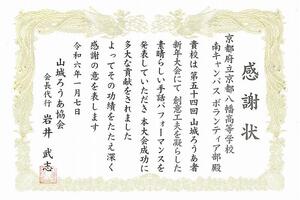 感謝状
京都府立京都八幡高等学校
南キャンパス ボランティア部殿
貴校は第五十四回山城ろうあ者
新年大会にて 創意工夫を凝らした
素晴らしい手話パフォーマンスを
発表していただき、本大会成功に
多大な貢献をされました
よってその功績をたたえ深く
感謝の意を表します
令和六年一月七日
山城ろうあ協会
会長代行 岩井武志